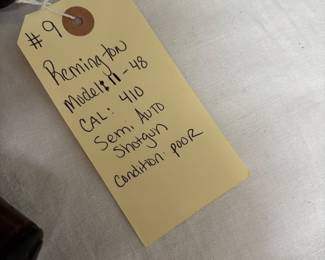 #9
Remington
Model: 11-48
CAL: 410
Semi: AUTO
Shotgun
Condition: pooR